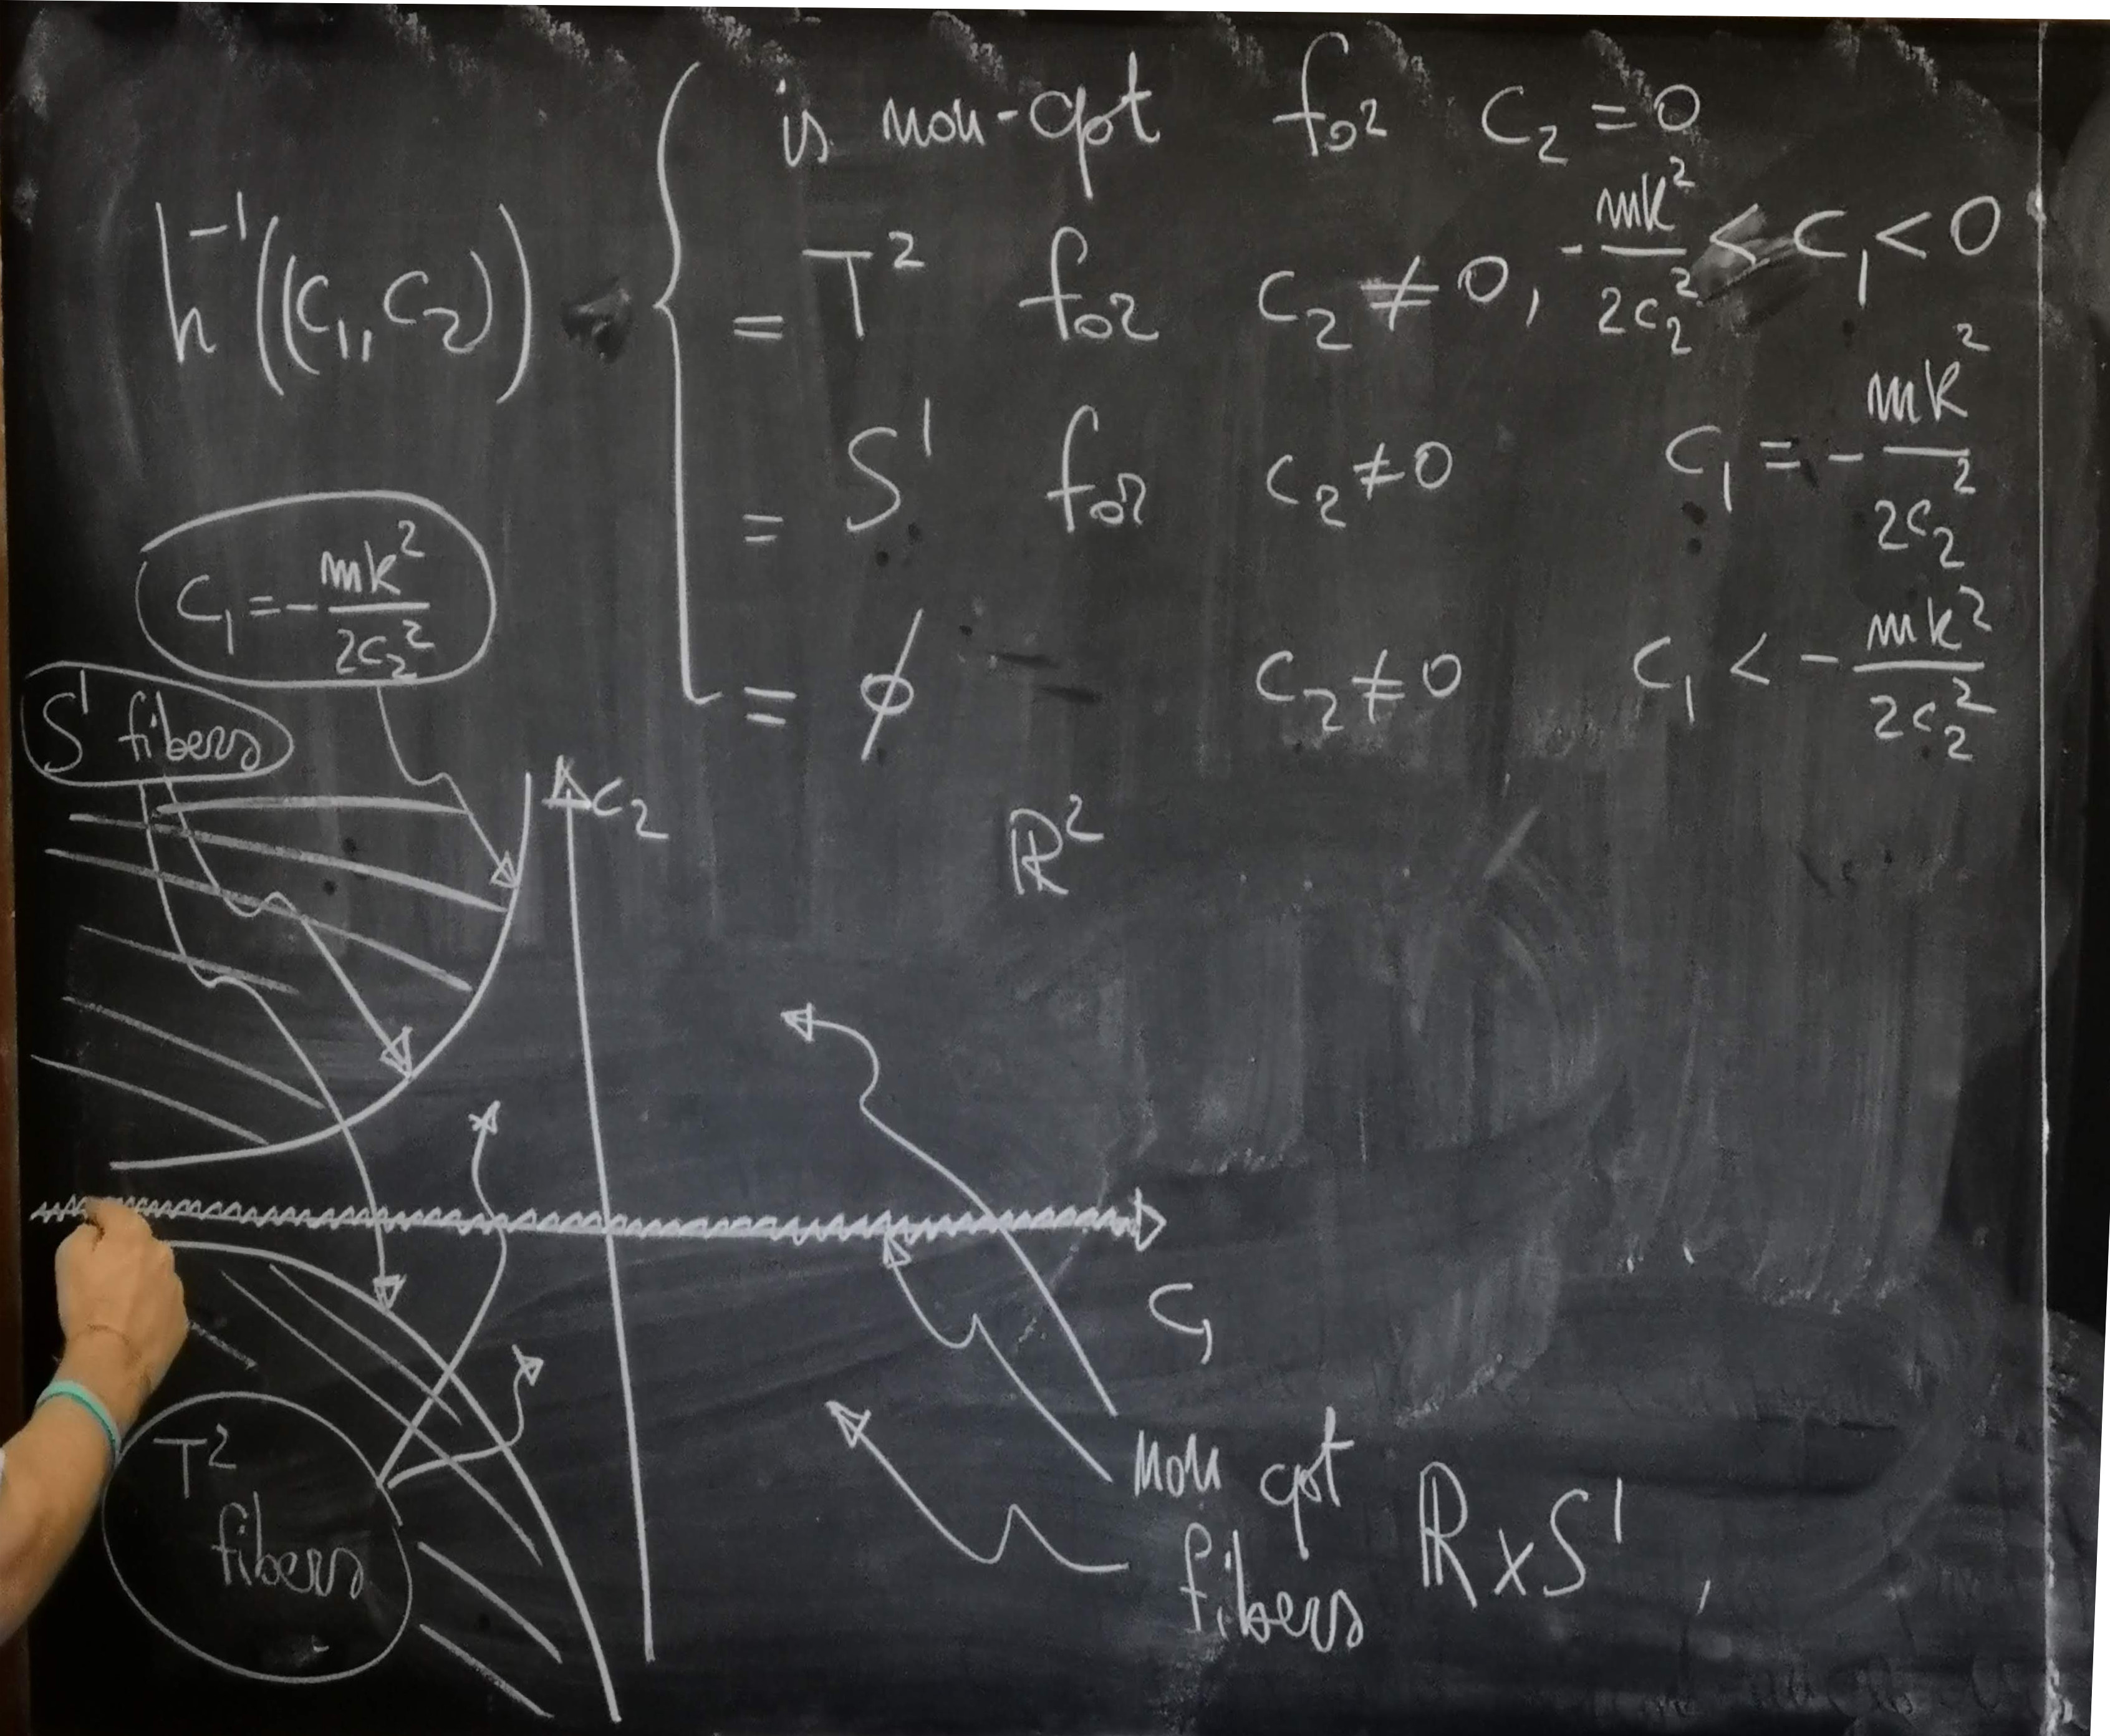 is non-cpt for C₂ = 0
h⁻¹((C₁, C₂)) = T² for C₂ ≠ 0, -mk²/2C₂² < C₁ < 0
= S¹ for C₂ ≠ 0 C₁ = -mk²/2C₂²
= ∅ C₂ ≠ 0 C₁ < -mk²/2C₂²
C₁ = -mk²/2C₂²
S¹ fibers
C₂
ℝ²
C₁
T²
fibers
non cpt
fibers ℝ×S¹,